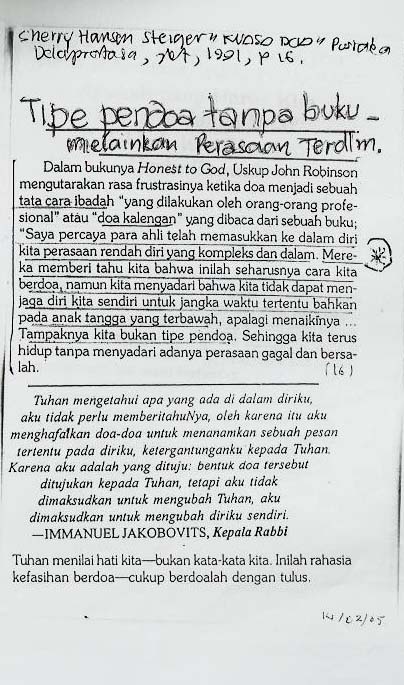 Cherry Hansen Steiger "KUASO DOO" Pustaka
Delaprotasa, 1991, p 16.
Tipe pendoa tanpa buku -
melainkan Perasaan Terdlm.
Dalam bukunya Honest to God, Uskup John Robinson
mengutarakan rasa frustrasinya ketika doa menjadi sebuah
tata cara ibadah "yang dilakukan oleh orang-orang profe-
sional" atau "doa kalengan" yang dibaca dari sebuah buku;
"Saya percaya para ahli telah memasukkan ke dalam diri
kita perasaan rendah diri yang kompleks dan dalam. Mere-
ka memberi tahu kita bahwa inilah seharusnya cara kita
berdoa, namun kita menyadari bahwa kita tidak dapat men-
jaga diri kita sendiri untuk jangka waktu tertentu bahkan
pada anak tangga yang terbawah, apalagi menaikinya ...
Tampaknya kita bukan tipe pendoa. Sehingga kita terus
hidup tanpa menyadari adanya perasaan gagal dan bersa-
lah. (16)
Tuhan mengetahui apa yang ada di dalam diriku,
aku tidak perlu memberitahuNya, oleh karena itu aku
menghafalkan doa-doa untuk menanamkan sebuah pesan
tertentu pada diriku, ketergantunganku kepada Tuhan.
Karena aku adalah yang dituju: bentuk doa tersebut
ditujukan kepada Tuhan, tetapi aku tidak
dimaksudkan untuk mengubah Tuhan, aku
dimaksudkan untuk mengubah diriku sendiri.
—IMMANUEL JAKOBOVITS, Kepala Rabbi
Tuhan menilai hati kita—bukan kata-kata kita. Inilah rahasia
kefasihan berdoa—cukup berdoalah dengan tulus.
14/02/05